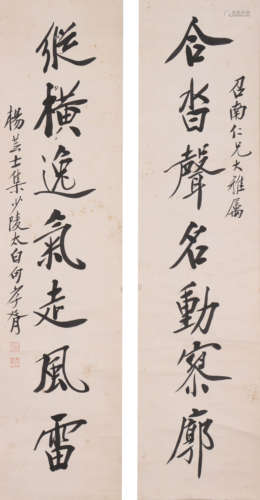 召南仁兄大雅屬
合沓聲名動寥廓
縱橫逸氣走風雷
楊芸士集少陵太白句 孝胥